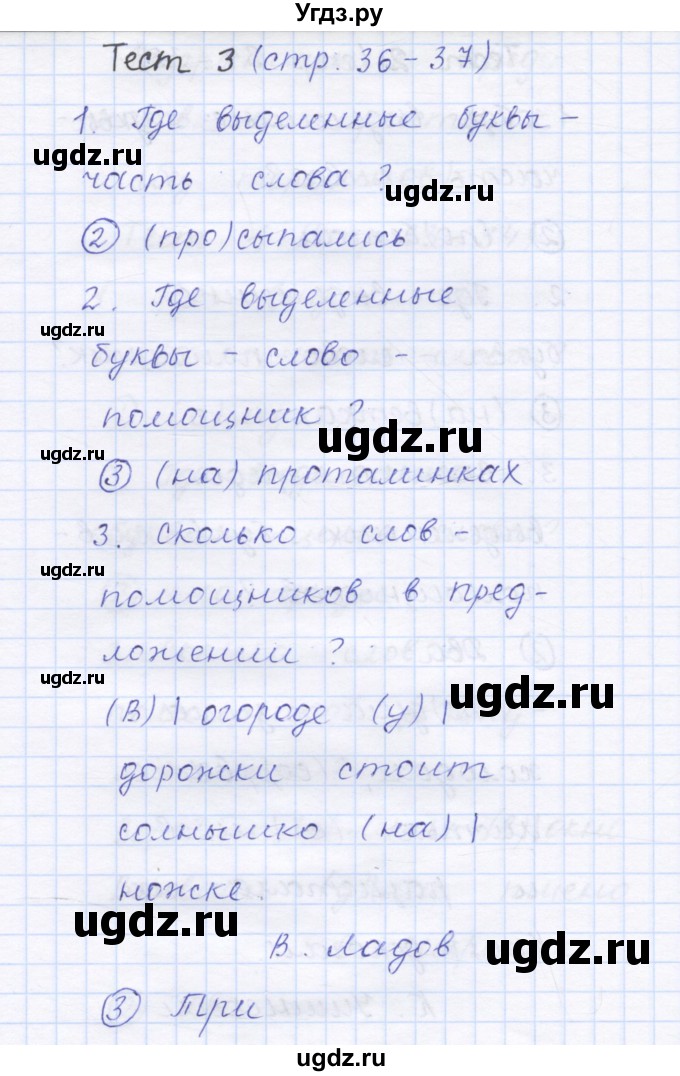 Угдз.ру
Тест 3 (стр. 36 - 37)
1. Где выделенные буквы -
ugdz.ru
ugdz.ru
часть слова?
② (про)сыпались
2. Где выделенные
ugdz.ru
буквы - слово -
помощник?
ugdz.ru
ugdz.ru
③ (на) проталинках
3. Сколько слов -
ugdz.ru
помощников в пред-
ложении?
ugdz.ru
ugdz.ru
(В) | огороде (у) |
дорожки стоит
солнышко (на) |
ножке.
ugdz.ru
В. Ладов
ugdz.ru
③ Три
ugdz.ru